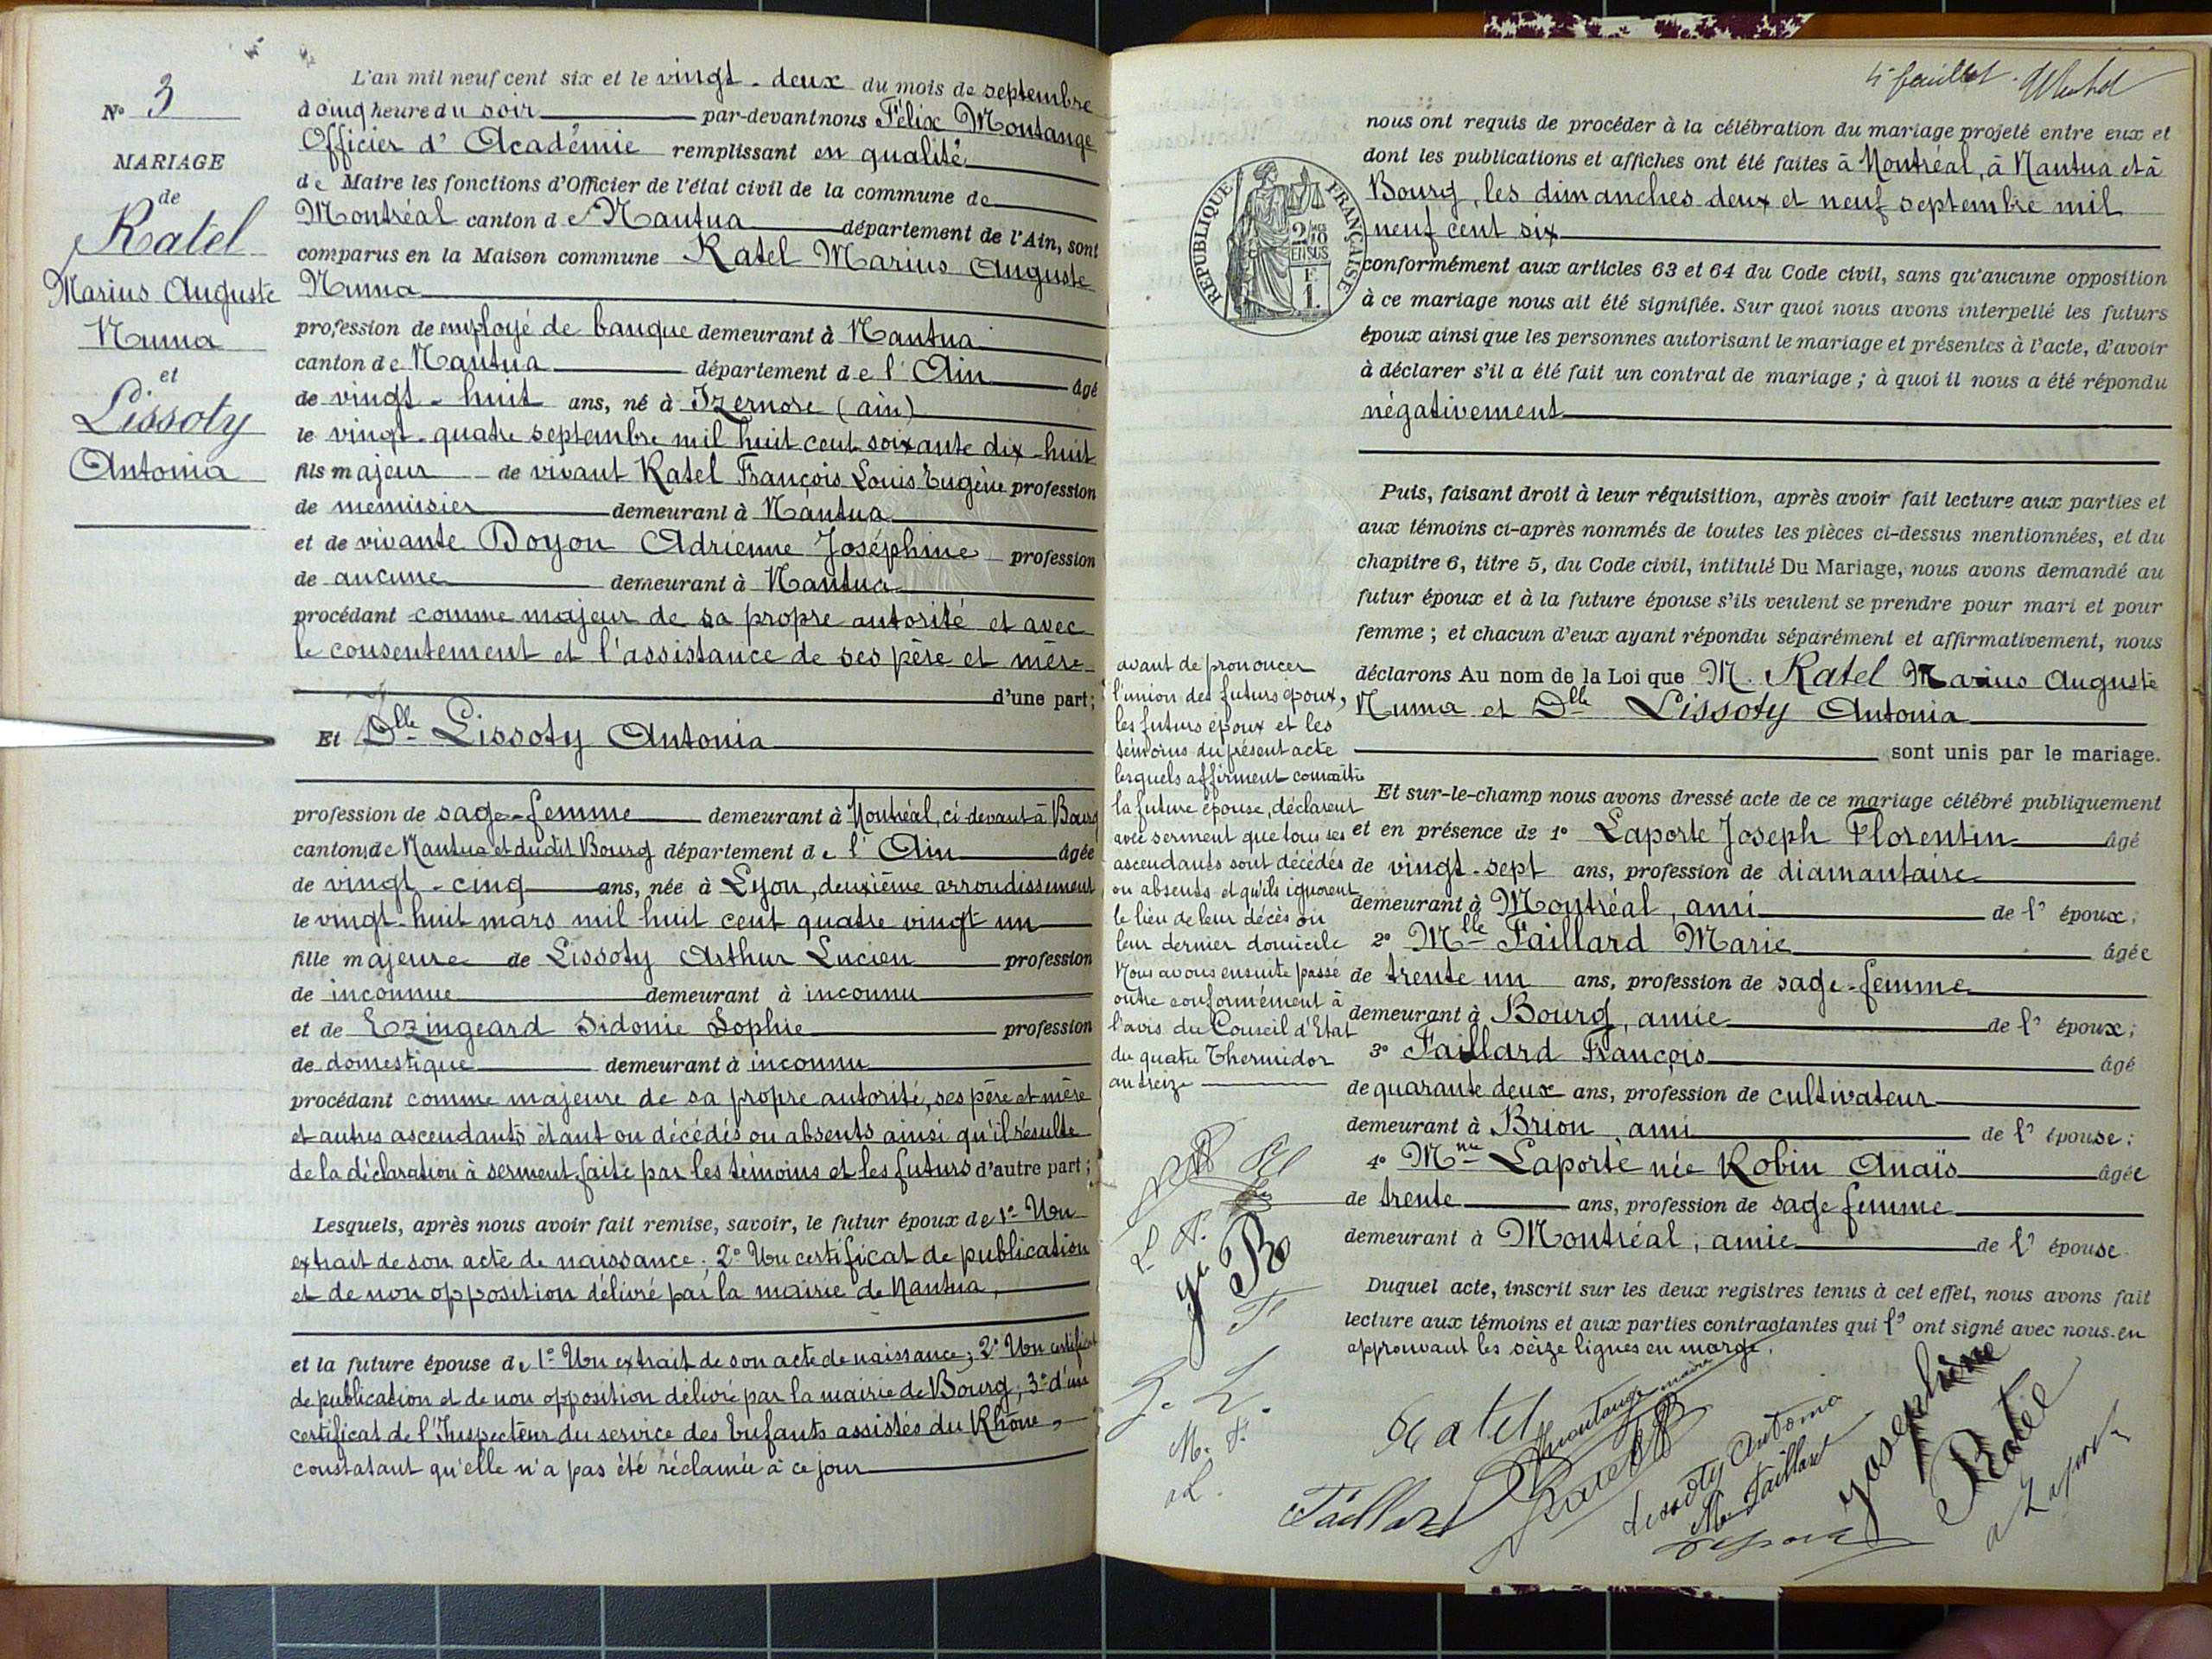 N° 3
MARIAGE
de
Ratel
Marius Auguste
Numa
et
Lissoty
Antonia
L'an mil neuf cent six et le vingt-deux du mois de septembre
à cinq heure du soir par-devant nous Félix Montange
Officier d'Académie remplissant en qualité
de Maire les fonctions d'Officier de l'état civil de la commune de
Montréal canton de Nantua département de l'Ain, sont
comparus en la Maison commune Ratel Marius Auguste
Numa
profession de employé de banque demeurant à Nantua
canton de Nantua département de l'Ain âgé
de vingt-huit ans, né à Izernore (ain)
le vingt-quatre septembre mil huit cent soixante dix-huit
fils majeur de vivant Ratel François Louis Eugène profession
de menuisier demeurant à Nantua
et de vivante Doyon Adrienne Joséphine profession
de aucune demeurant à Nantua
procédant comme majeur de sa propre autorité et avec
le consentement et l'assistance de ses père et mère
d'une part;
Et Dlle Lissoty Antonia
profession de sage-femme demeurant à Montréal, ci-devant à Bourg
cantons de Nantua et dudit Bourg département de l'Ain âgée
de vingt-cinq ans, née à Lyon, deuxième arrondissement
le vingt-huit mars mil huit cent quatre vingt un
fille majeure de Lissoty Arthur Lucien profession
de inconnue demeurant à inconnu
et de Ezingeard Sidonie Sophie profession
de domestique demeurant à inconnu
procédant comme majeure de sa propre autorité, ses père et mère
et autres ascendants étant ou décédés ou absents ainsi qu'il résulte
de la déclaration à serment faite par les témoins et les futurs d'autre part;
Lesquels, après nous avoir fait remise, savoir, le futur époux de 1° Un
extrait de son acte de naissance; 2° Un certificat de publication
et de non opposition délivré par la mairie de Nantua,
et la future épouse de 1° Un extrait de son acte de naissance; 2° Un certificat
de publication et de non opposition délivré par la mairie de Bourg, 3° d'un
certificat de l'Inspecteur du service des Enfants assistés du Rhône,
constatant qu'elle n'a pas été réclamée à ce jour
feuillet
nous ont requis de procéder à la célébration du mariage projeté entre eux et
dont les publications et affiches ont été faites à Montréal, à Nantua et à
Bourg, les dimanches deux et neuf septembre mil
neuf cent six
conformément aux articles 63 et 64 du Code civil, sans qu'aucune opposition
à ce mariage nous ait été signifiée. Sur quoi nous avons interpellé les futurs
époux ainsi que les personnes autorisant le mariage et présentes à l'acte, d'avoir
à déclarer s'il a été fait un contrat de mariage; à quoi il nous a été répondu
négativement
RÉPUBLIQUE FRANÇAISE
2/10 EN SUS
F. 1.
Puis, faisant droit à leur réquisition, après avoir fait lecture aux parties et
aux témoins ci-après nommés de toutes les pièces ci-dessus mentionnées, et du
chapitre 6, titre 5, du Code civil, intitulé Du Mariage, nous avons demandé au
futur époux et à la future épouse s'ils veulent se prendre pour mari et pour
femme; et chacun d'eux ayant répondu séparément et affirmativement, nous
déclarons Au nom de la Loi que M. Ratel Marius Auguste
Numa et Dlle Lissoty Antonia
sont unis par le mariage.
Et sur-le-champ nous avons dressé acte de ce mariage célébré publiquement
et en présence de 1° Laporte Joseph Florentin âgé
de vingt-sept ans, profession de diamantaire
demeurant à Montréal, ami de l' époux;
2° Mlle Faillard Marie âgée
de trente un ans, profession de sage-femme
demeurant à Bourg, amie de l' époux;
3° Faillard François âgé
de quarante deux ans, profession de cultivateur
demeurant à Brion, ami de l' épouse;
4° Mme Laporte née Robin Anaïs âgée
de trente ans, profession de sage femme
demeurant à Montréal, amie de l' épouse
Duquel acte, inscrit sur les deux registres tenus à cet effet, nous avons fait
lecture aux témoins et aux parties contractantes qui l' ont signé avec nous en
approuvant les seize lignes en marge.
avant de prononcer
l'union des futurs époux,
les futurs époux et les
témoins du présent acte
lesquels affirment connaître
la future épouse, déclarent
avec serment que tous ses
ascendants sont décédés
ou absents et qu'ils ignorent
le lieu de leur décès ou
leur dernier domicile
Nous avons ensuite passé
outre conformément à
l'avis du Conseil d'Etat
du quatre Thermidor
an treize
L. A.
J. L.
M. F.
a L.
Ratel
Montange maire
Lissoty Antonia
M. Faillard
Joséphine
Ratel
a Laporte
Faillard